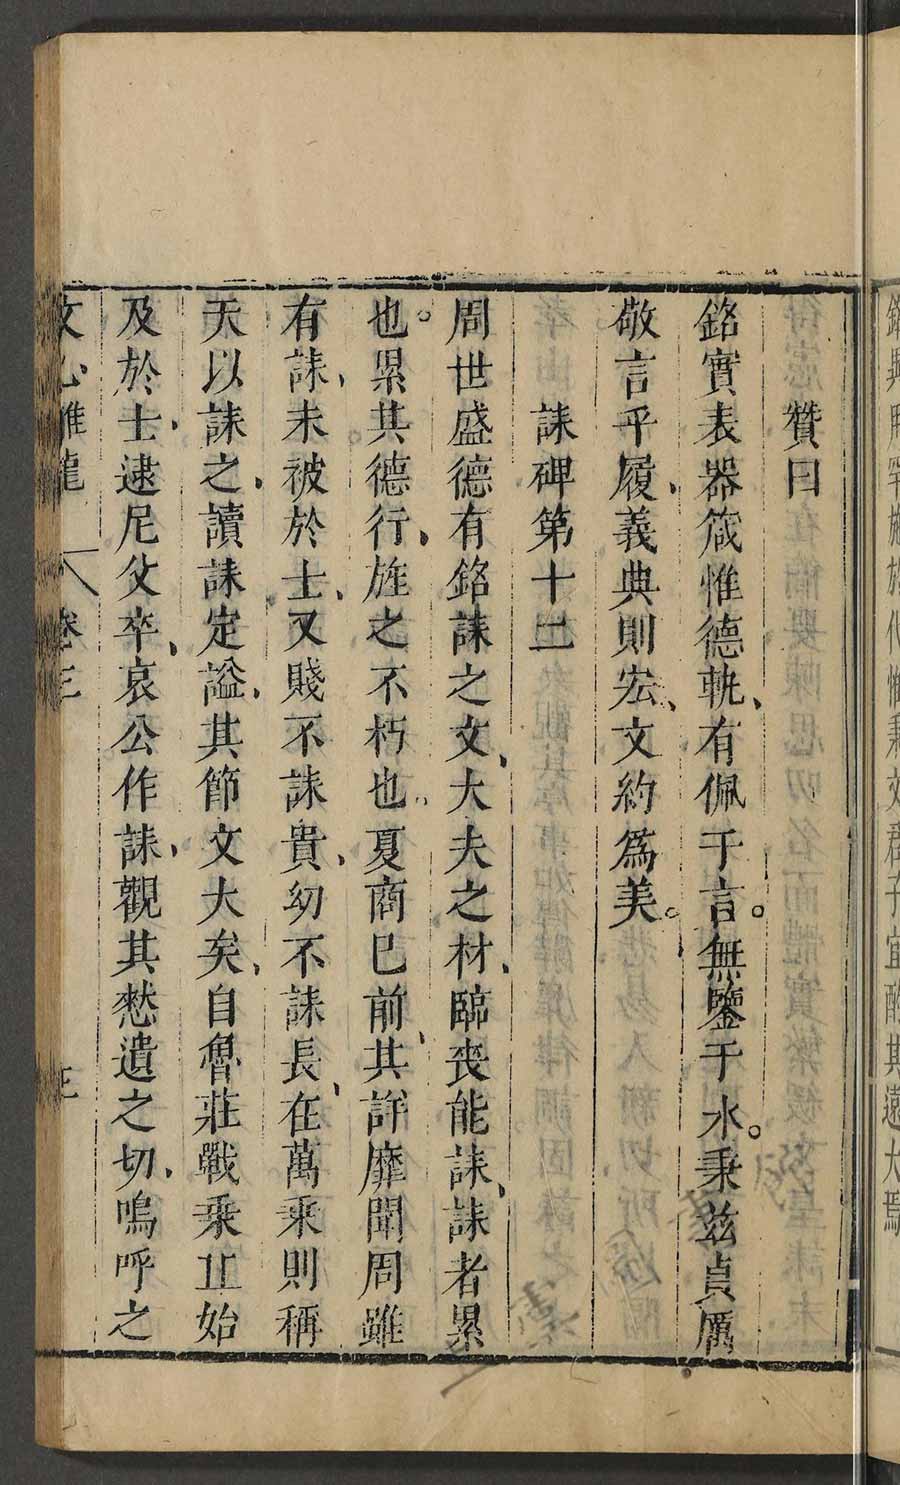 贊曰
銘實表器箴惟德軌、有佩于言。無鑒于水。秉茲貞厲
敬言乎履、義典則宏、文約爲美。
誄碑第十二
周世盛德有銘誄之文、大夫之材、臨喪能誄、誄者累
也。累其德行、旌之不朽也、夏商已前、其詳靡聞周雖
有誄、未被於士、又賤不誄貴、幼不誄長、在萬乘則稱
天以誄之、讀誄定謚、其節文大矣、自魯莊戰乘丘始
及於士、逮尼父卒、哀公作誄、觀其慭遺之切、嗚呼之
文心雕龍 卷三